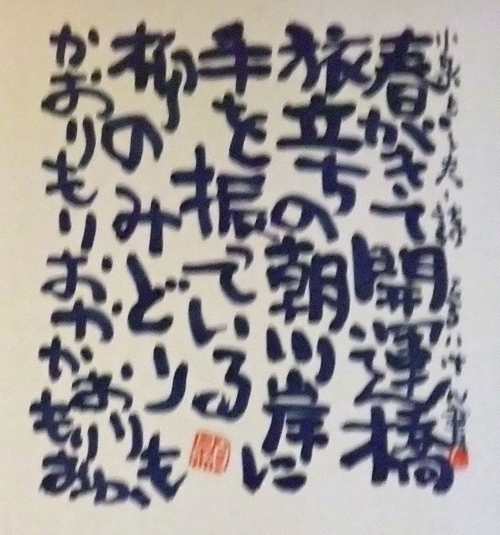 小泉とし夫・詩
春がきて開運橋
旅立ちの朝川岸に
手を振っている
柳のみどりも
かおりもりおかかおりもりおか